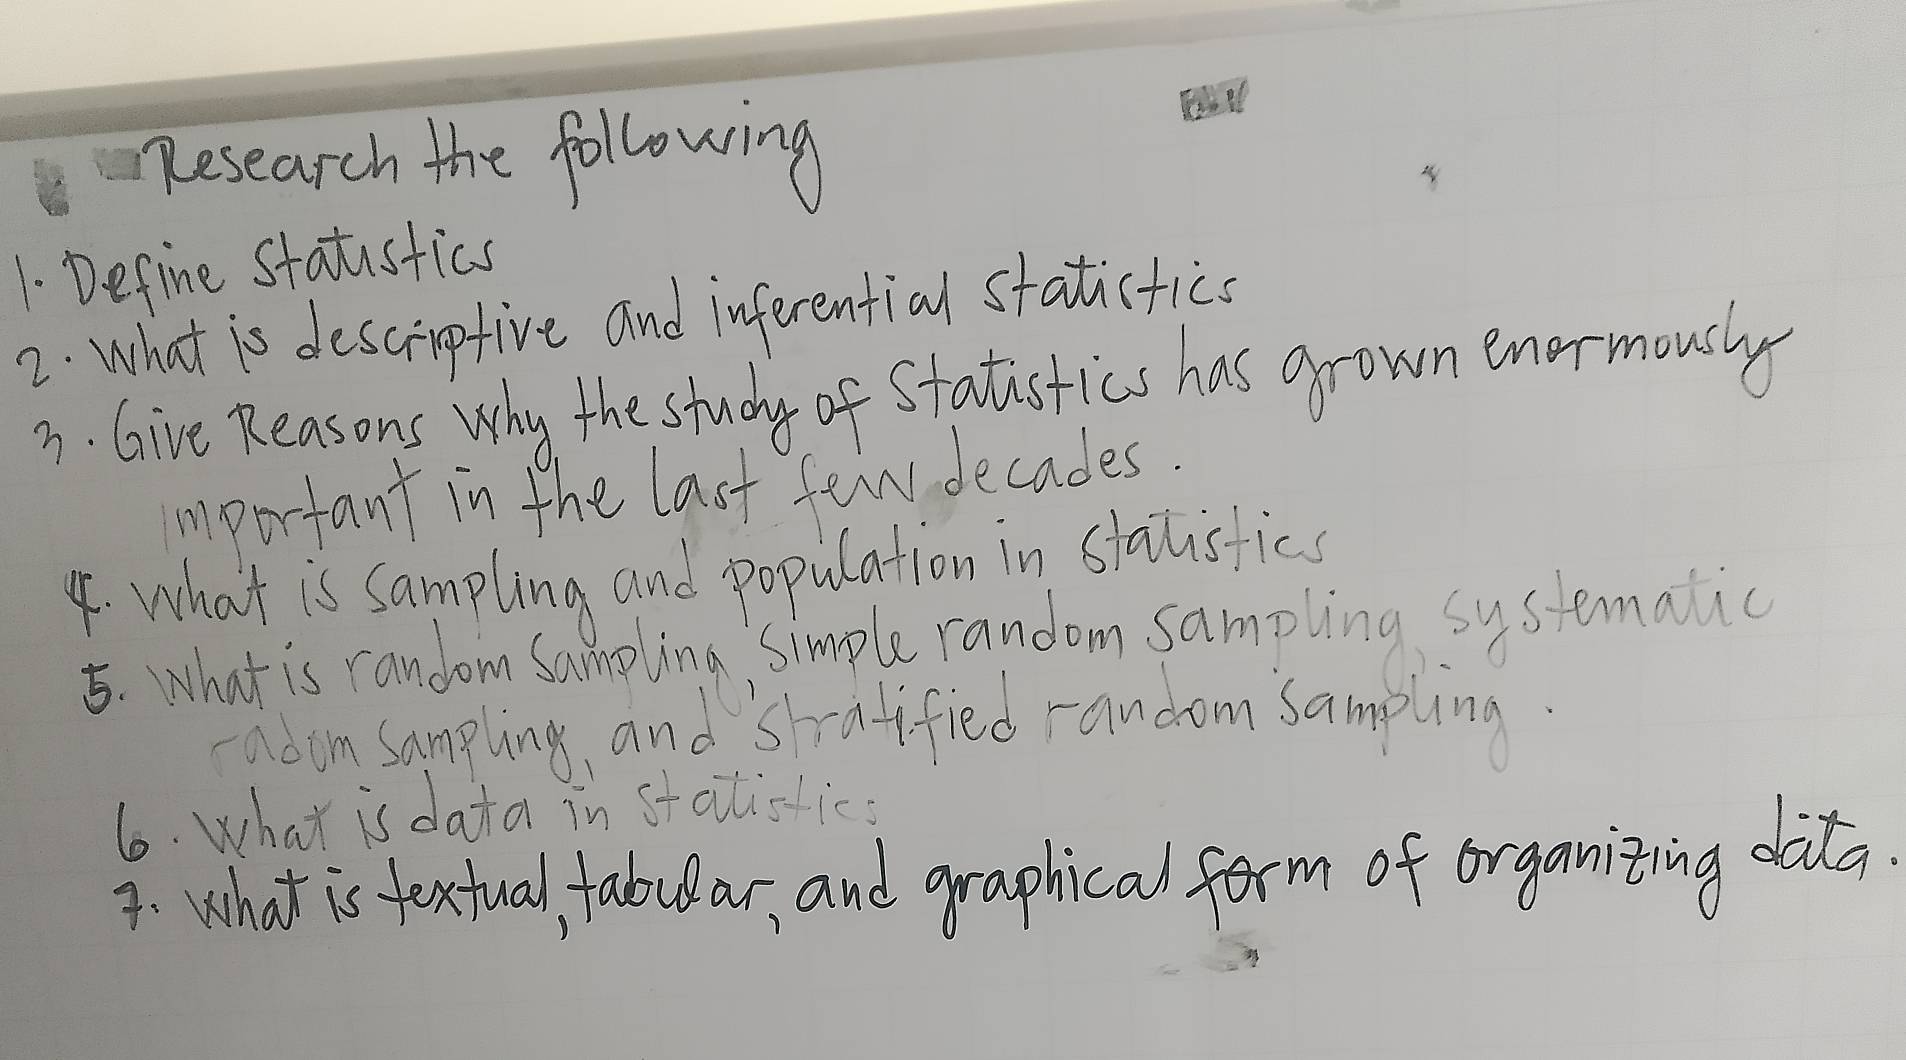 Research the following
1. Define Statistics
2. What is descriptive and inferential statistics
3. Give Reasons why the study of Statistics has grown enormously
important in the last few decades.
4. What is sampling and population in statistics
5. What is random sampling, simple random sampling, systematic
radom sampling, and stratified random sampling.
6. What is data in statistics
7. What is textual, tabular, and graphical form of organizing data.